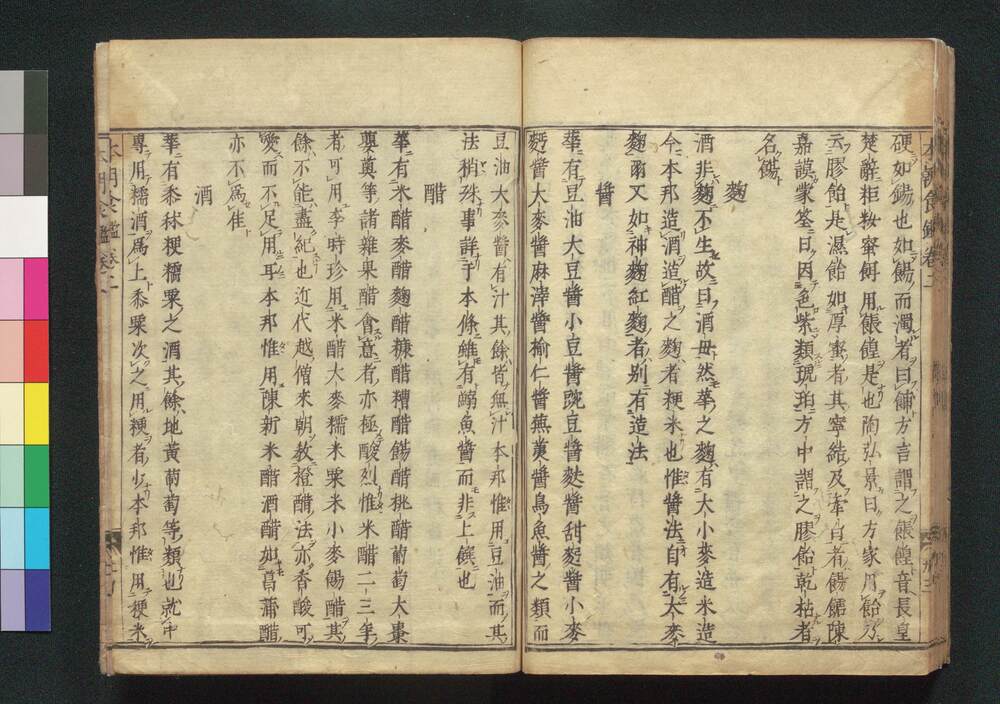 硬如餳也如餳而濁者曰餔方言謂之餦餭音長皇
楚辭粔籹蜜餌用餦餭是也陶弘景曰方家用飴乃
云膠飴是濕飴如厚蜜者其寧結及牽白者餳餹陳
嘉謨蒙筌曰因色紫類琥珀方中謂之膠飴乾枯者
名餳
麴
酒非麴不生故曰酒母然華之麴有大小麥造米造
今本邦造酒造醋之麴者粳米也惟醬法自有大麥
麴爾又如神麴紅麴者別有造法
醬
華有豆油大豆醬小豆醬豌豆醬麩醬甜麪醬小麥
麪醬大麥醬麻滓醬榆仁醬蕪荑醬鳥魚醬之類而
豆油大麥醬有汁其餘皆無汁本邦惟用豆油而其
法稍殊事詳于本條雖有鰯魚醬而非上饌也
醋
華有米醋麥醋麴醋糠醋糟醋餳醋桃醋葡萄大棗
蘡薁等諸雜果醋會意者亦極酸烈惟米醋二三年
者可用李時珍用米醋大麥糯米粟米小麥餳醋其
餘不能盡紀也近代越僧來朝教橙醋法亦香酸可
愛而不足用耳本邦惟用陳新米醋酒醋如菖蒲醋
亦不為佳
酒
華有黍秫粳糯粟之酒其餘地黃葡萄等類也就中
專用糯酒為上黍粟次之用粳者少本邦惟用粳米